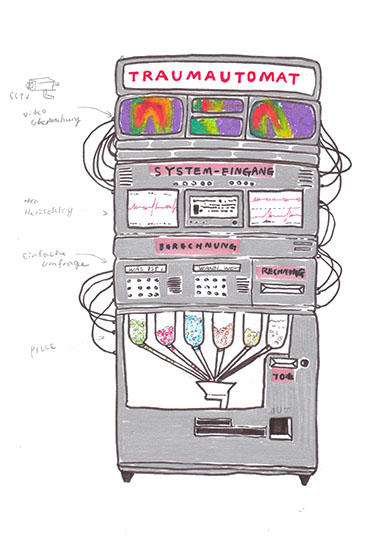 TRAUMAUTOMAT
CCTV
Video
Überwachung
SYSTEM-EINGANG
Herzschlag
BERECHNUNG
Einfache
Umfrage
WAS ISST
WANN, WO?
RECHNUNG
PILLE
OUT